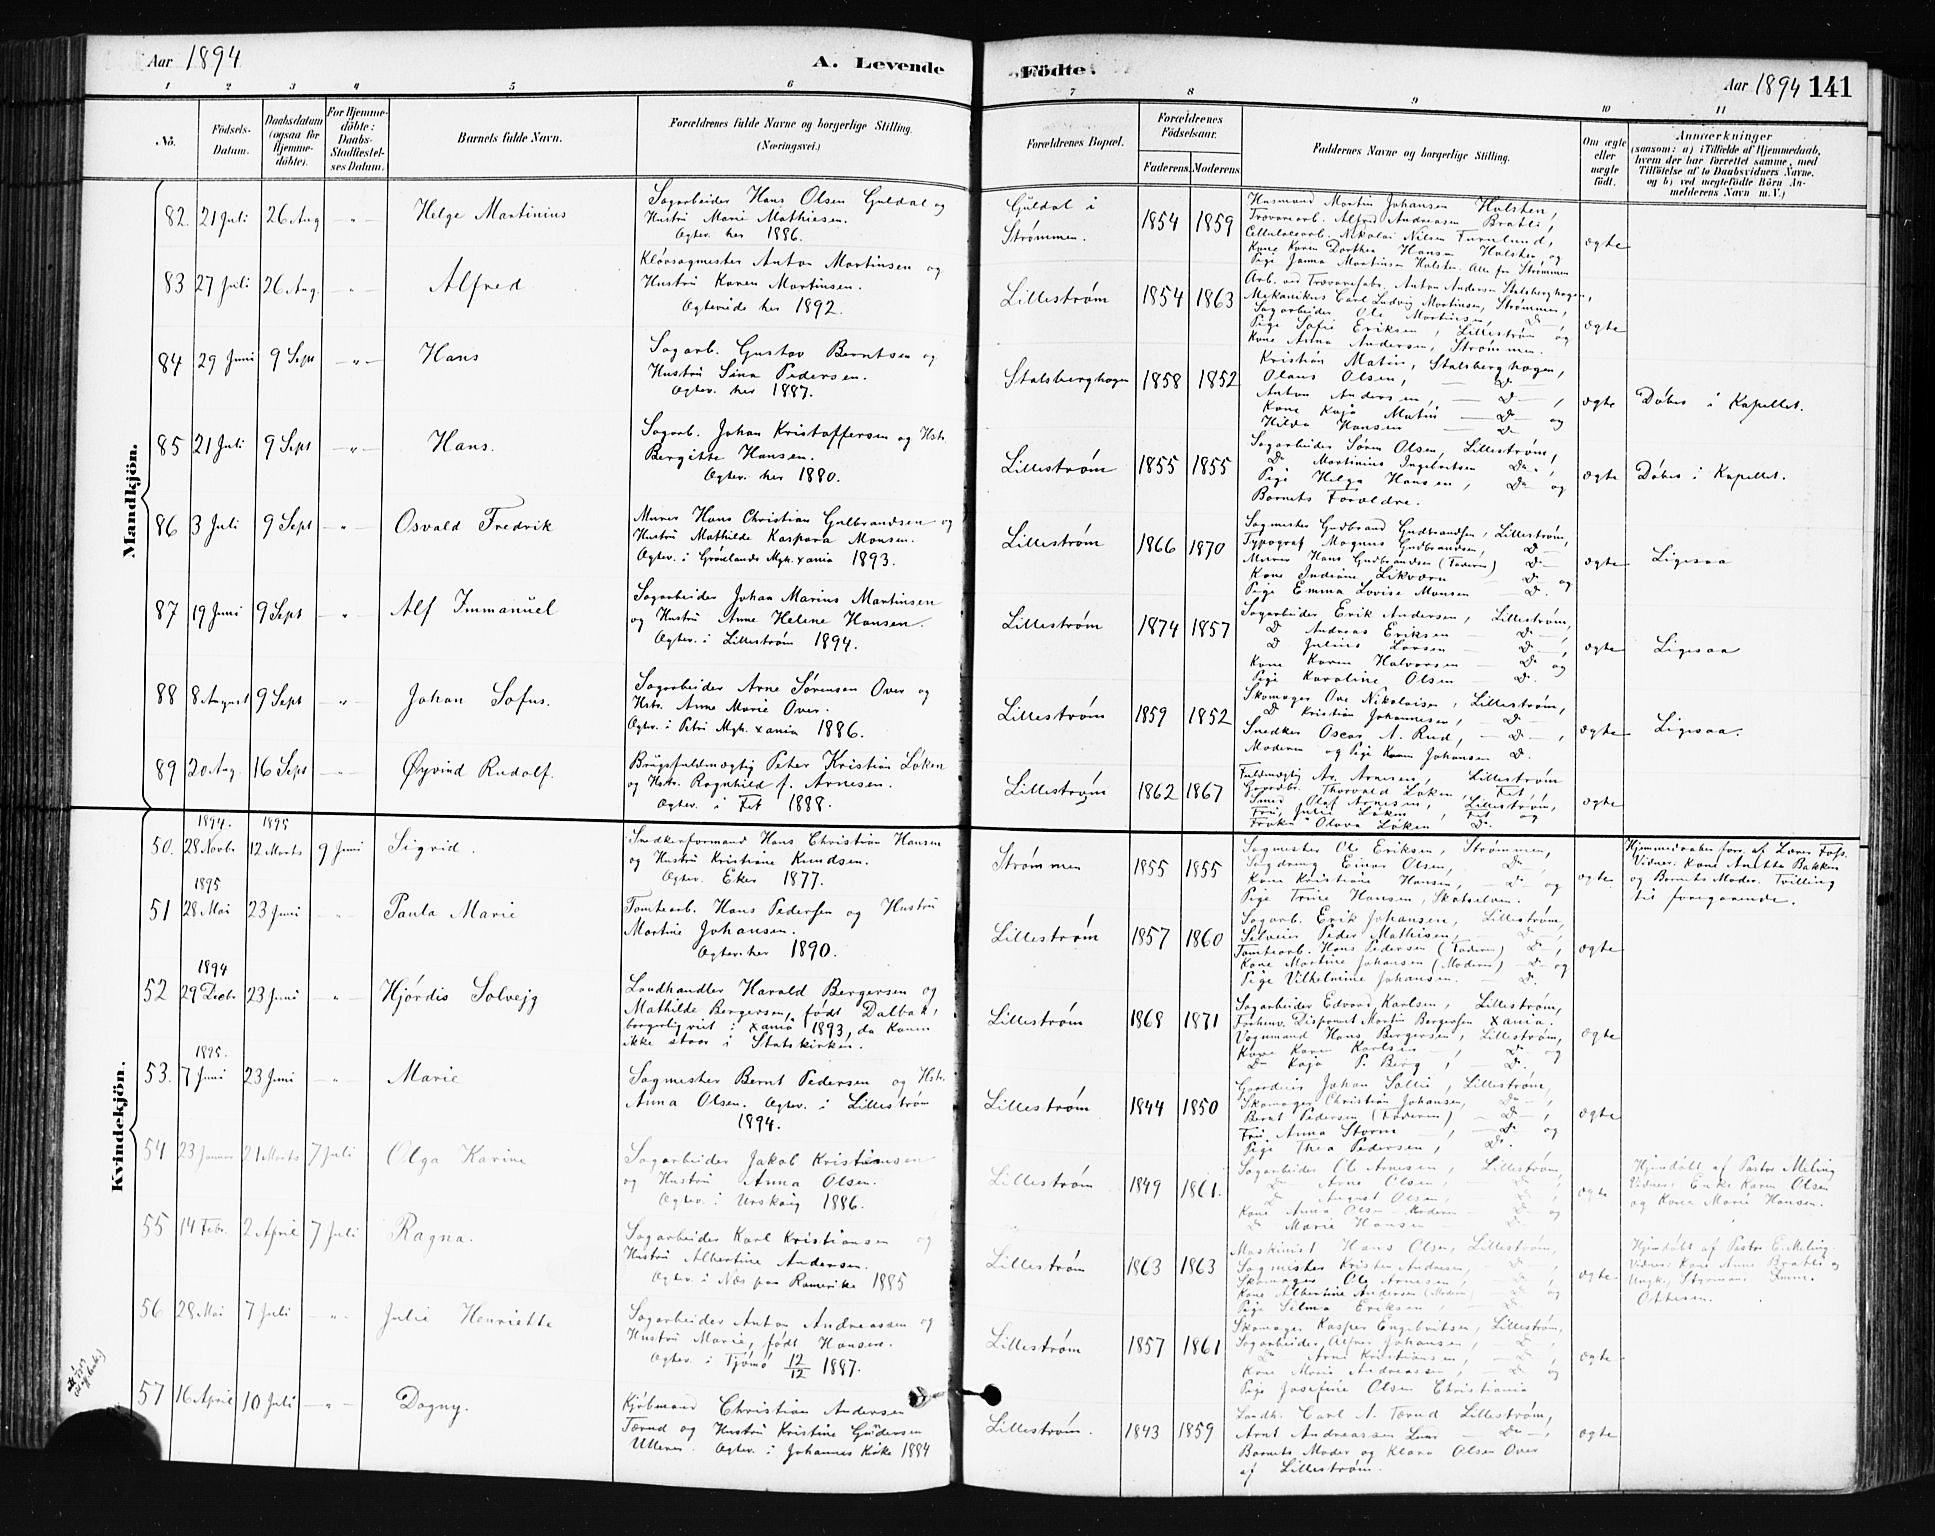 Aar 1894
A. Levende
Födte.
Aar 1894 141
1 2 3 4 5 6 7 8 9 10 11
No.
Födsels-Datum.
Daabsdatum (ogsaa for Hjemme-döbte).
For Hjemme-döbte: Daabs-Stadfæstel-ses Datum.
Barnets fulde Navn.
Forældrenes fulde Navne og borgerlige Stilling.
(Næringsvei.)
Forældrenes Bopæl.
Forældrenes Födselsaar.
Faderens. Moderens.
Faddernes Navne og borgerlige Stilling.
Om ægte eller uægte födt.
Anmærkninger
(saasom: a) i Tilfælde af Hjemmedaab,
hvem der har forrettet samme, med
Tilföielse af to Daabsvidners Navne.
og b) ved uægtefödte Börn An-
melderens Navn m.V.)
Mandkjön.
82. 21 Juli 26 Aug -"- Helge Martinius
Sagarbeider Hans Olsen Guldal og
Hustru Marie Mathiesen.
Ægtev. her 1886.
Guldal i
Strømmen.
1854 1859
Husmand Martin Johansen Holsten,
Trævarearb. Alfred Andreasen Bratli,
Cellulosearb. Nikolai Nilsen Furulund,
Kone Karen Dorthea Hansen Holsten og
Pige Janna Martinsen Holsten. Alle fra Strømmen
ægte
83 27 Juli 26 Aug. -"- Alfred
Kløvsagmester Anton Martinsen og
Hustru Karen Martinsen.
Ægteviede her 1892.
Lillestrøm 1854 1863
Arb. ved Trævarefabr. Anton Andersen Stalsberghagen,
Mekanikus Carl Ludvig Martinsen, Strømmen,
Sagarbeider Ole Martinsen, D -,
Pige Sofie Eriksen, Lillestrøm og
Kone Anna Andersen, Strømmen.
ægte
84 29 Juni 9 Sept -"- Hans
Sagarb. Gustav Berntsen og
Hustru Sina Pedersen.
Ægtev. her 1887.
Stalsberghagen 1858 1852
Kristian Matin, Stalsberghagen,
Olaus Olsen, - D -
Anton Andersen, - D -,
Kone Kaja Matin - D - og
Hilda Hansen - D
ægte Døbes i Kapellet.
85 21 Juli 9 Sept -"- Hans.
Sagarb. Johan Kristoffersen og Hstr.
Bergitte Hansen.
Ægtev. her 1880.
Lillestrøm 1855 1855
Sagarbeider Søren Olsen, Lillestrøm,
D Martinius Ingebretsen Do,
Pige Helga Hansen, Do og
Barnets Forældre.
ægte Døbes i Kapellet.
86 3 Juli 9 Sept -"- Osvald Fredrik
Murer Hans Christian Gulbrandsen og
Hustru Mathilde Kaspara Monsen.
Ægtev. i Grønlands Mgh. Xania 1893.
Lillestrøm 1866 1870
Sagmester Gudbrand Gudbrandsen, Lillestrøm,
Typograf Magnus Gudbrandsen, D -
Murer Hans Gudbrandsen (Faderen) D -
Kone Indiane Likværn - D og
Pige Emma Lovise Monsen - D.
ægte Ligesaa
87 19 Juni 9 Sept -"- Alf Immanuel
Sagarbeider Johan Marius Martinsen
og Hustru Anne Helene Hansen.
Ægtev. i Lillestrøm 1894.
Lillestrøm 1874 1857
Sagarbeider Erik Andersen, Lillestrøm,
D Andreas Eriksen D -,
D Julius Larsen - D -,
Kone Karen Halvorsen - Do og
Pige Karoline Olsen - D.
ægte Ligesaa
88 8 August 9 Sept -"- Johan Sofus.
Sagarbeider Arne Sørensen Over og
Hstr. Anne Marie Over.
Ægtev. i Petri Mgh. Xania 1886.
Lillestrøm 1859 1852
Skomager Ove Nikolaisen, Lillestrøm,
D Kristian Johannesen, D -
Snedker Oscar A. Rud, - D -,
Moderen og Pige Karen Johansen D.
ægte Ligesaa.
89 20 Aug. 16 Sept -"- Øyvind Rudolf.
Brugsfuldmægtig Peter Kristian Løken
og Hstr. Ragnhild f. Arnesen.
Ægtev. i Fet 1888.
Lillestrøm 1862 1867
Fuldmægtig Ar. Arnesen, Lillestrøm
Gaardbr. Thorvald Løken, Fet,
Smed Olaf Arnesen, Lillestrøm,
Fru Julie Løken, Fet og
Frøken Olava Løken D.
ægte
Kvindekjön.
1894. 1895
50. 28 Novbr. 12 Marts 9 Juni Sigrid.
Snedkerformand Hans Christian Hansen
og Hustru Kristiane Knudsen.
Ægtev. Eker 1877.
Strømmen 1855 1855
Sagmester Ole Eriksen, Strømmen,
Sagdreng Einar Olsen, D -,
Kone Kristiane Hansen, - D - og
Pige Trine Hansen, Skotselven.
ægte
Hjemmedaaben forr. af Lærer Foss.
Vidner: Kone Anetta Bakken
og Barnets Moder. Tvilling
til foregaaende.
1895
51 28 Mai 23 Juni -"- Paula Marie
Tomtearb. Hans Pedersen og Hustru
Martine Johansen.
Ægtev. her 1890.
Lillestrøm 1857 1860
Sagarb. Erik Johansen, Lillestrøm,
Peder Mathisen, - D -,
Tomtearb. Hans Pedersen (Faderen) D -,
Kone Martine Johansen (Moderen) - D - og
Pige Vilhelmine Johansen. - D.
ægte
1894
52 29 Decbr. 23 Juni -"- Hjørdis Solvejg
Landhandler Harald Bergersen og
Mathilde Bergersen, født Dalbak,
borgerlig viet i Xania 1893, da Konen
ikke staar i Statskirken.
Lillestrøm 1868 1871
Sagarbeider Edvard Karlsen, Lillestrøm,
Forhenv. Disponent Martin Bergersen Xania.
Vognmand Hans Bergersen, Lillestrøm,
Kone Karen Karlsen -, D - og
Do Kaja P. Berg, - D.
ægte
1895.
53. 7 Juni 23 Juni -"- Marie
Sagmester Bernt Pedersen og Hstr.
Anna Olsen. Ægtev. i Lillestrøm
1894.
Lillestrøm 1844 1850
Gaardeier Johan Sollie, Lillestrøm,
Skomager Christian Johansen, Do -,
Bernt Pedersen (Faderen) - D -,
Fru Anna Storm -, - D og
Pige Thea Pedersen, D.
ægte
54 23 Januar 21 Marts 7 Juli Olga Karine
Sagarbeider Jakob Kristiansen
og Hustru Anna Olsen.
Ægtev. i Urskoug 1886.
Lillestrøm 1849 1861.
Sagarbeider Ole Arnesen, Lillestrøm,
D Arne Olsen, D -,
D August Olsen D -,
Kone Anna Olsen - Moderen - D og
D Marie Hansen - D.
ægte
Hjemdøbt af Pastor Meling
Vidner: Enke Karen Olsen
og Kone Marie Hansen.
55 14 Febr. 2 April 7 Juli Ragna.
Sagarbeider Karl Kristiansen og
Hustru Albertine Andersen.
Ægtev. i Næs paa Romerike 1885
Lillestrøm 1863 1863
Maskinist Hans Olsen, Lillestrøm,
Sagmester Kristen Andersen, D -,
Skomager Ole Arnesen, D -,
Kone Albertine Andersen (Moderen) - D og
Pige Selma Eriksen, D.
ægte
Hjemdøbt af Pastor E. Meling.
Vidner: Kone Anne Bratli og
Ungk. Styrmand
Ottesen.
56 28 Mai 7 Juli -"- Julie Henriette
Sagarbeider Anton Andreassen og
Hustru Marie, født Hansen.
Ægtev. i Tjømø 12/12 1887.
Lillestrøm 1857 1861
Skomager Kasper Engebritsen, Lillestrøm,
Sagarbeider Alfred Johansen, - D -,
Do Arne Kristiansen, - D -,
Kone Marie Andreassen, - D og
Pige Josefine Olsen Christiania
ægte
57 16 April 10 Juli -"- Dagny.
Kjøbmand Christian Andersen
Tærud og Hustru Kristine Gudersen
Ulleren. Ægtev. i Johannes Kirke 1884
Lillestrøm. 1843 1859
Landh. Carl A. Tærud Lillestrøm,
Arnt Andreassen Luar - Do -,
Barnets Moder og Klara Olsen Over
af Lillestrøm.
ægte